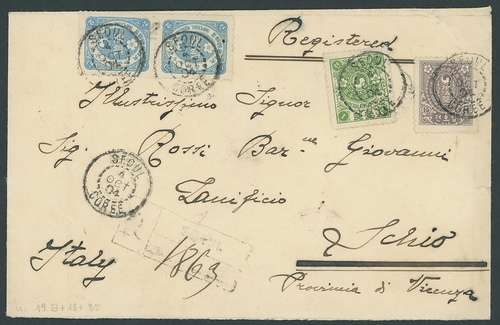 Registered
SEOUL
COREE
SEOUL
COREE
SEOUL
COREE
SEOUL
COREE
Illustrissimo Signor
Sig. Rossi Bar.ne Giovanni
SEOUL
4
OCT
04
COREE
Lanificio
Schio
Italy
1863
Provincia di Vicenza